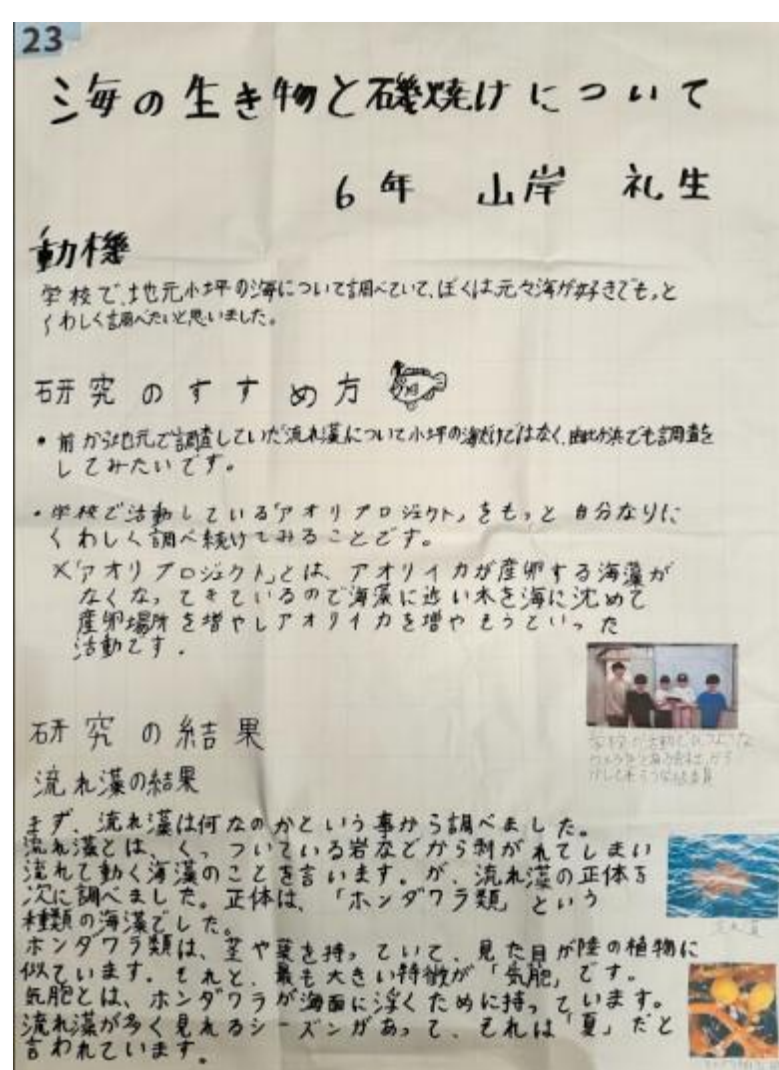 23
海の生き物と磯焼けについて
6年 山岸 礼生
動機
学校で、地元小坪の海について調べていて、ぼくは元々海が好きでもっと
くわしく調べたいと思いました。
研究のすすめ方
・前から地元で調査していた流れ藻について小坪の海だけではなく、由比ガ浜でも調査を
してみたいです。
・学校で活動している「アオリプロジェクト」をもっと自分なりに
くわしく調べ続けてみることです。
※「アオリプロジェクト」とは、アオリイカが産卵する海藻が
なくなってきているので海藻に近い木を海に沈めて
産卵場所を増やしアオリイカを増やそうといった
活動です。
研究の結果
流れ藻の結果
まず、流れ藻は何なのかという事から調べました。
流れ藻とは、くっついている岩などから剥がれてしまい
流れて動く海藻のことを言います。が、流れ藻の正体を
次に調べました。正体は、「ホンダワラ類」という
種類の海藻でした。
ホンダワラ類は、茎や葉を持っていて、見た目が陸の植物に
似ています。それと、最も大きい特徴が「気胞」です。
気胞とは、ホンダワラが海面に浮くために持っています。
流れ藻が多く見れるシーズンがあって、それは「夏」だと
言われています。
流れ藻